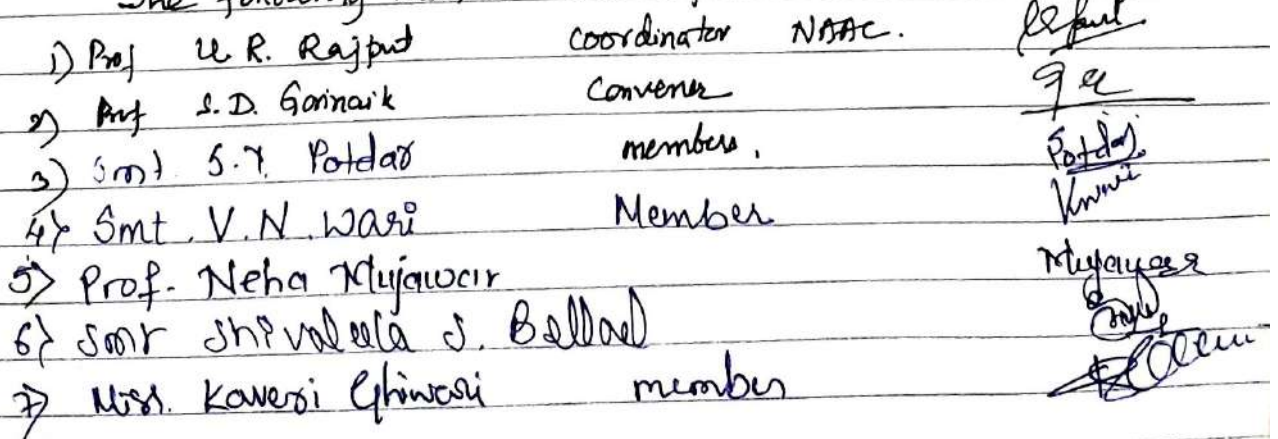 The following
1) Prof U. R. Rajput coordinator NAAC.
2) Prof S. D. Gorinaik Convener
3) Smt. S. Y. Potdar members.
4) Smt. V. N. Wari Member
5) Prof. Neha Mujawar Mujawar
6) Smt Shivaleela S. Bellad
7) Miss. Kaveri Ghiwari member